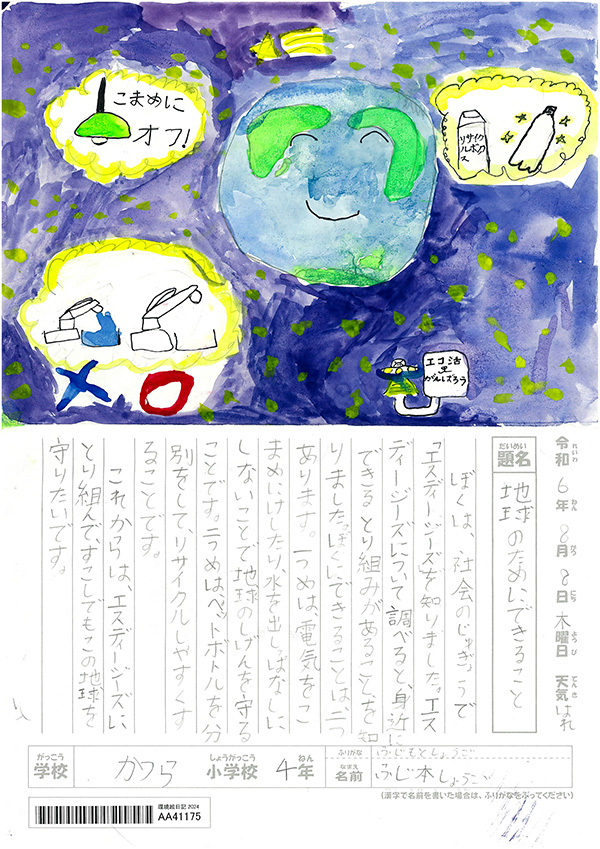 こまめに
オフ!
リサイク
ルボック
ス
エコ活
を
がんばろう
令和6年8月8日木曜日 天気はれ
れいわ ねん がつ にち ようび てんき
だいめい
題名
地球のためにできること
ぼくは、社会のじゅぎょうで
「エスディージーズ」を知りました。エス
ディージーズについて調べると、身近に
できるとり組みがあることを知
りました。ぼくにできることは、二つ
あります。一つめは、電気をこ
まめにけしたり、水を出しっぱなしに
しないことで地球のしげんを守る
ことです。二つめはペットボトルを分
別をして、リサイクルしやすくす
ることです。
これからは、エスディージーズに、
とり組んで、すこしでもこの地球を
守りたいです。
がっこう
学校
かつら
しょうがっこう
小学校
4年
ねん
ふりがな
ふじもとしょうご
なまえ
名前
ふじ本しょうご
(漢字で名前を書いた場合は、ふりがなをふってください)
環境絵日記 2024
AA41175